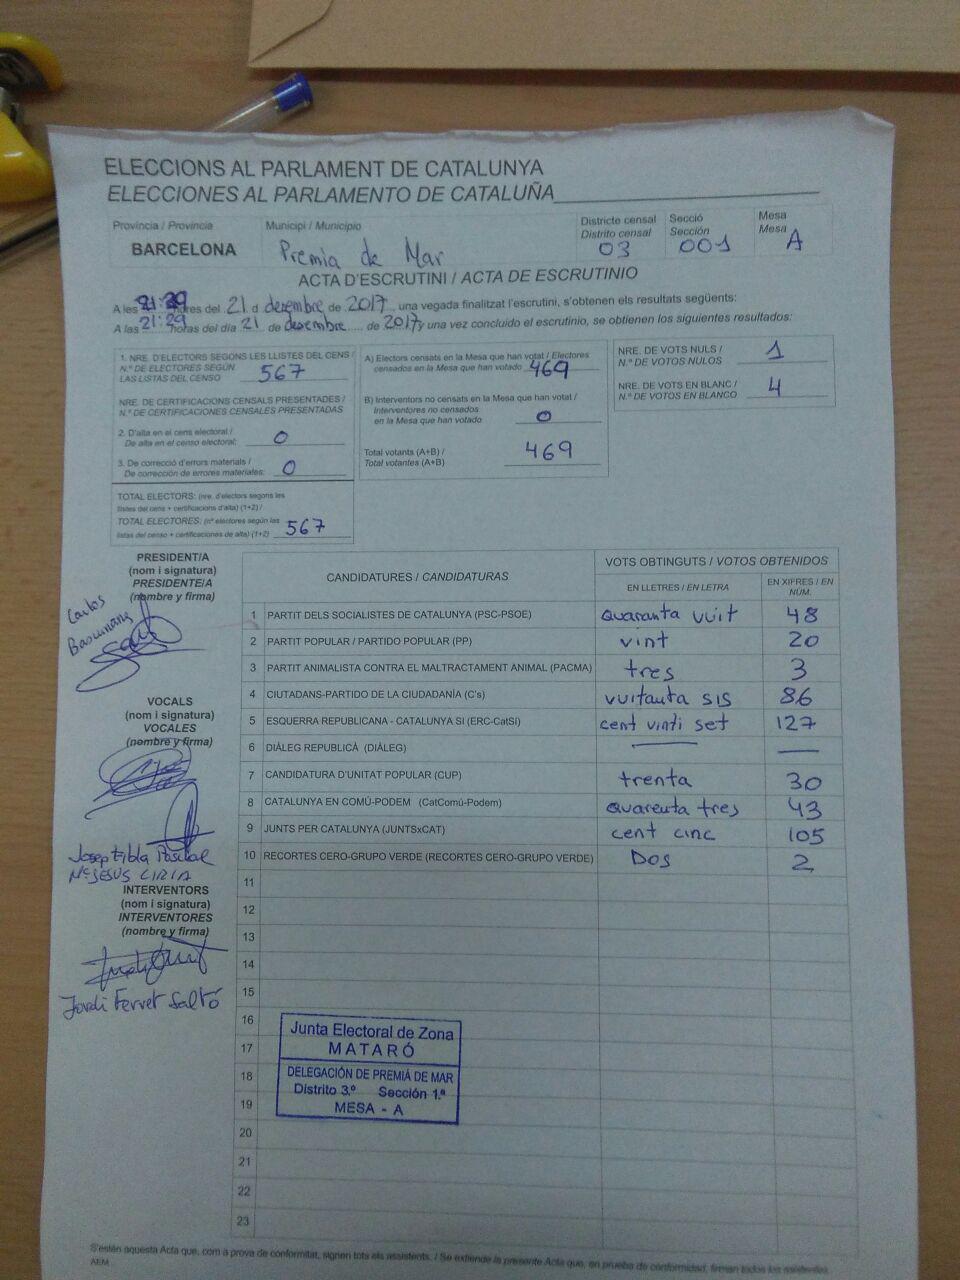 ELECCIONS AL PARLAMENT DE CATALUNYA
ELECCIONES AL PARLAMENTO DE CATALUÑA
Provincia / Provincia
BARCELONA
Municipi / Municipio
Premia de Mar
Districte censal
Distrito censal
03
Secció
Sección
001
Mesa
Mesa
A
ACTA D'ESCRUTINI / ACTA DE ESCRUTINIO
A les 21:29 hores del 21 d desembre de 2017, una vegada finalitzat l'escrutini, s'obtenen els resultats següents:
A las 21:29 horas del día 21 de desembre de 2017, y una vez concluido el escrutinio, se obtienen los siguientes resultados:
1. NRE. D'ELECTORS SEGONS LES LLISTES DEL CENS /
N.º DE ELECTORES SEGÚN
LAS LISTAS DEL CENSO 567
NRE. DE CERTIFICACIONS CENSALS PRESENTADES /
N.º DE CERTIFICACIONES CENSALES PRESENTADAS
2. D'alta en el cens electoral /
De alta en el censo electoral: 0
3. De correcció d'errors materials /
De corrección de errores materiales: 0
TOTAL ELECTORS: (nre. d'electors segons les
llistes del cens + certificacions d'alta) (1+2) /
TOTAL ELECTORES: (nº electores según las
listas del censo + certificaciones de alta) (1+2) 567
A) Electors censats en la Mesa que han votat / Electores
censados en la Mesa que han votado 469
B) Interventors no censats en la Mesa que han votat /
Interventores no censados
en la Mesa que han votado 0
Total votants (A+B) /
Total votantes (A+B) 469
NRE. DE VOTS NULS /
N.º DE VOTOS NULOS 1
NRE. DE VOTS EN BLANC /
N.º DE VOTOS EN BLANCO 4
PRESIDENT/A
(nom i signatura)
PRESIDENTE/A
(nombre y firma)
Carlos
VOCALS
(nom i signatura)
VOCALES
(nombre y firma)
Josep
Mª JESUS LIRIA
INTERVENTORS
(nom i signatura)
INTERVENTORES
(nombre y firma)
Jordi Ferret Saltó
CANDIDATURES / CANDIDATURAS
VOTS OBTINGUTS / VOTOS OBTENIDOS
EN LLETRES / EN LETRA
EN XIFRES / EN NÚM.
1 PARTIT DELS SOCIALISTES DE CATALUNYA (PSC-PSOE) quaranta vuit 48
2 PARTIT POPULAR / PARTIDO POPULAR (PP) vint 20
3 PARTIT ANIMALISTA CONTRA EL MALTRACTAMENT ANIMAL (PACMA) tres 3
4 CIUTADANS-PARTIDO DE LA CIUDADANÍA (C's) vuitanta sis 86
5 ESQUERRA REPUBLICANA - CATALUNYA SI (ERC-CatSí) cent vinti set 127
6 DIÀLEG REPUBLICÀ (DIÀLEG) — —
7 CANDIDATURA D'UNITAT POPULAR (CUP) trenta 30
8 CATALUNYA EN COMÚ-PODEM (CatComú-Podem) quarenta tres 43
9 JUNTS PER CATALUNYA (JUNTSxCAT) cent cinc 105
10 RECORTES CERO-GRUPO VERDE (RECORTES CERO-GRUPO VERDE) Dos 2
11
12
13
14
15
16
17
18
19
20
21
22
23
Junta Electoral de Zona
MATARÓ
DELEGACIÓN DE PREMIÁ DE MAR
Distrito 3.º Sección 1.ª
MESA - A
S'estén aquesta Acta que, com a prova de conformitat, signen tots els assistents. / Se extiende la presente Acta que, en prueba de conformidad, firman todos los asistentes.
AEM